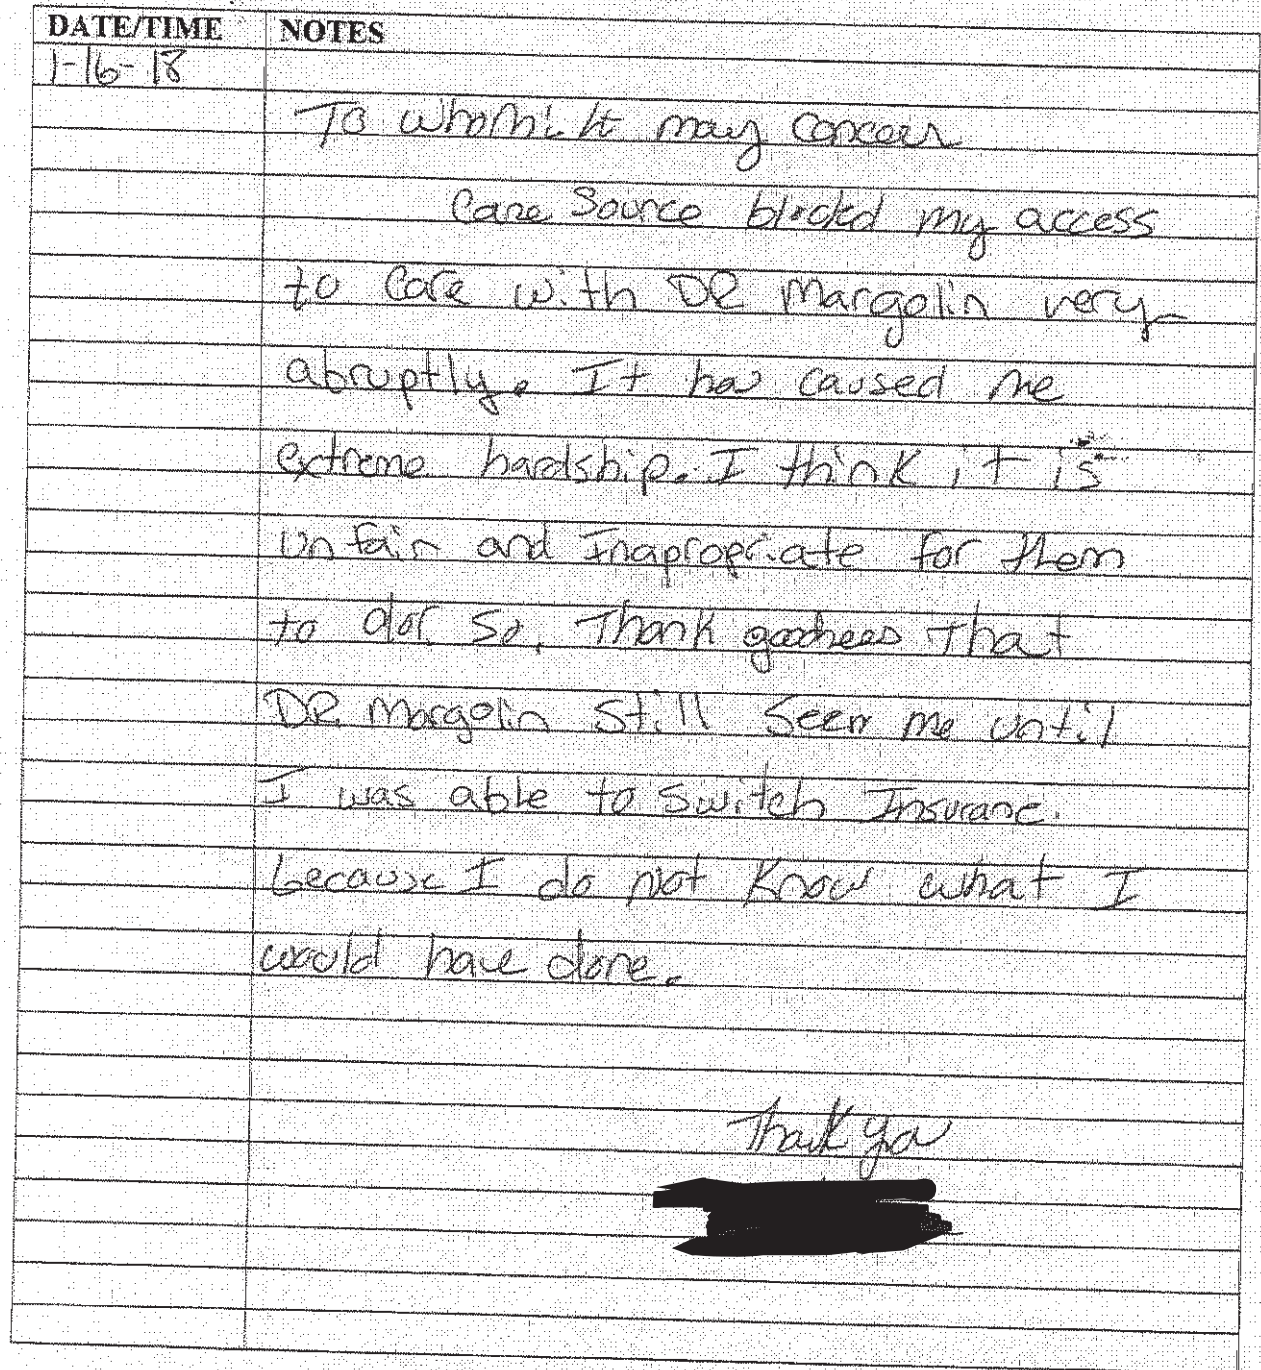 DATE/TIME NOTES
1-16-18
To whom it may concern
Care Source blocked my access
to care with DR Margolin very
abruptly. It has caused me
extreme hardship. I think it is
unfair and Inapropriate for them
to do so. Thank goodness That
DR Margolin still seen me until
I was able to switch Insurance.
because I do not know what I
would have done.
Thank you